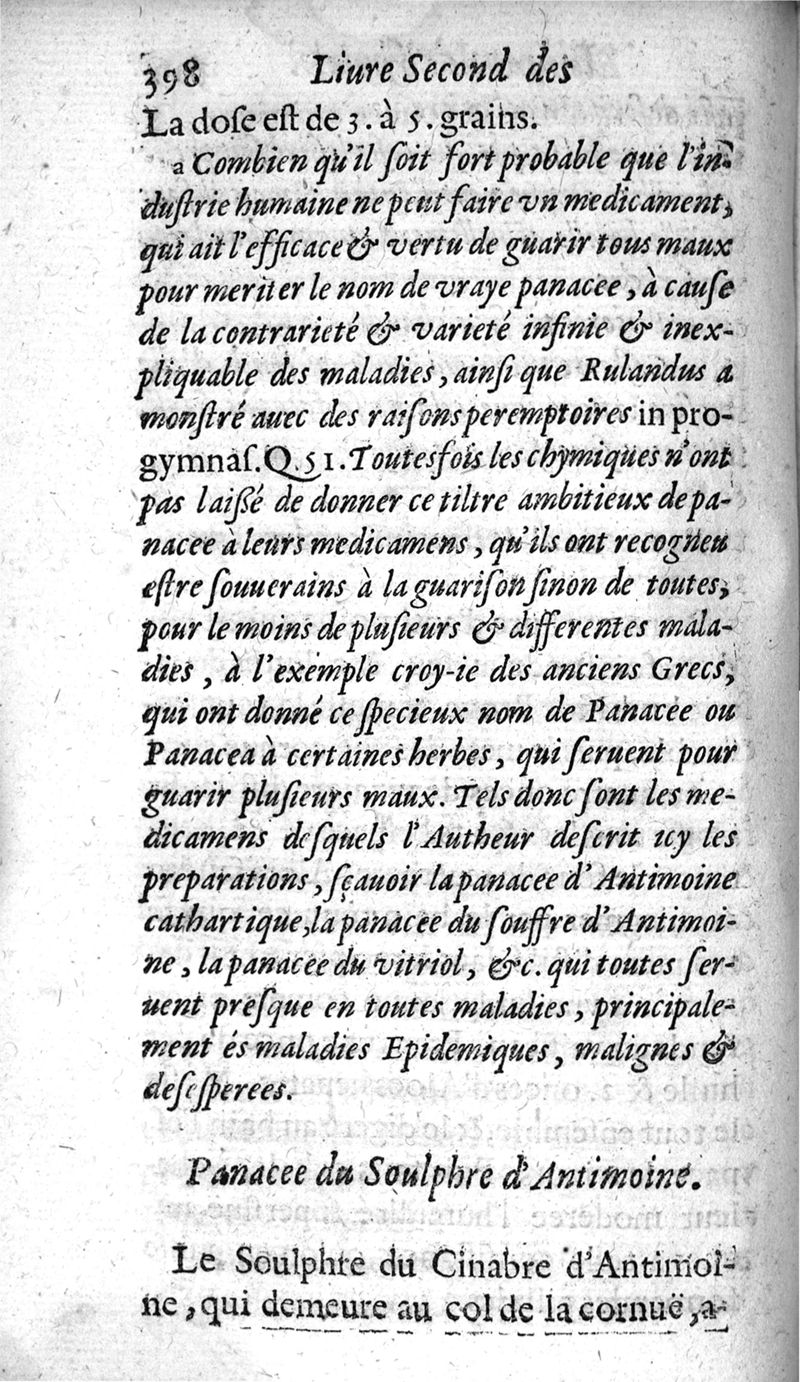 398 Liure Second des
La doſe eſt de 3. à 5. grains.
a Combien qu'il ſoit fort probable que l'in-
duſtrie humaine ne peut faire vn medicament,
qui ait l'efficace & vertu de guarir tous maux
pour meriter le nom de vraye panacee, à cauſe
de la contrarieté & varieté infinie & inex-
pliquable des maladies, ainſi que Rulandus a
monſtré auec des raiſons peremptoires in pro-
gymnaſ. Q. 51. Toutesfois les chymiques n'ont
pas laiſſé de donner ce tiltre ambitieux de pa-
nacee à leurs medicamens, qu'ils ont recogneu
eſtre ſouuerains à la guariſon ſinon de toutes,
pour le moins de pluſieurs & differentes mala-
dies, à l'exemple croy-ie des anciens Grecs,
qui ont donné ce ſpecieux nom de Panacee ou
Panacea à certaines herbes, qui ſeruent pour
guarir pluſieurs maux. Tels donc ſont les me-
dicamens deſquels l'Autheur deſcrit icy les
preparations, ſçauoir la panacee d'Antimoine
cathartique, la panacee du ſouffre d'Antimoi-
ne, la panacee du vitriol, &c. qui toutes ſer-
uent preſque en toutes maladies, principale-
ment és maladies Epidemiques, malignes &
deſeſperees.
Panacee du Soulphre d'Antimoine.
Le Soulphre du Cinabre d'Antimoi-
ne, qui demeure au col de la cornuë, a-